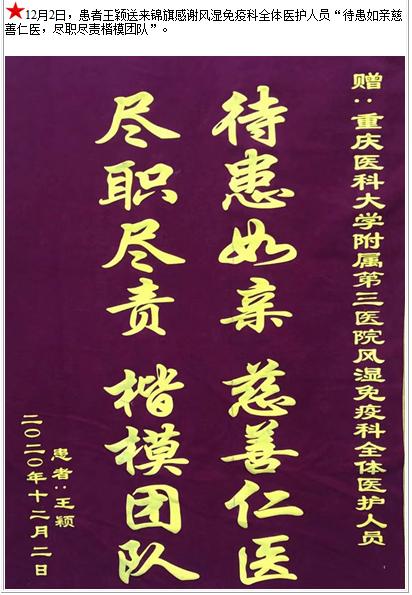 ★12月2日，患者王颖送来锦旗感谢风湿免疫科全体医护人员“待患如亲慈
善仁医，尽职尽责楷模团队”。
赠：重庆医科大学附属第三医院风湿免疫科全体医护人员
待患如亲 慈善仁医
尽职尽责 楷模团队
患者：王颖
二〇二〇年十二月二日